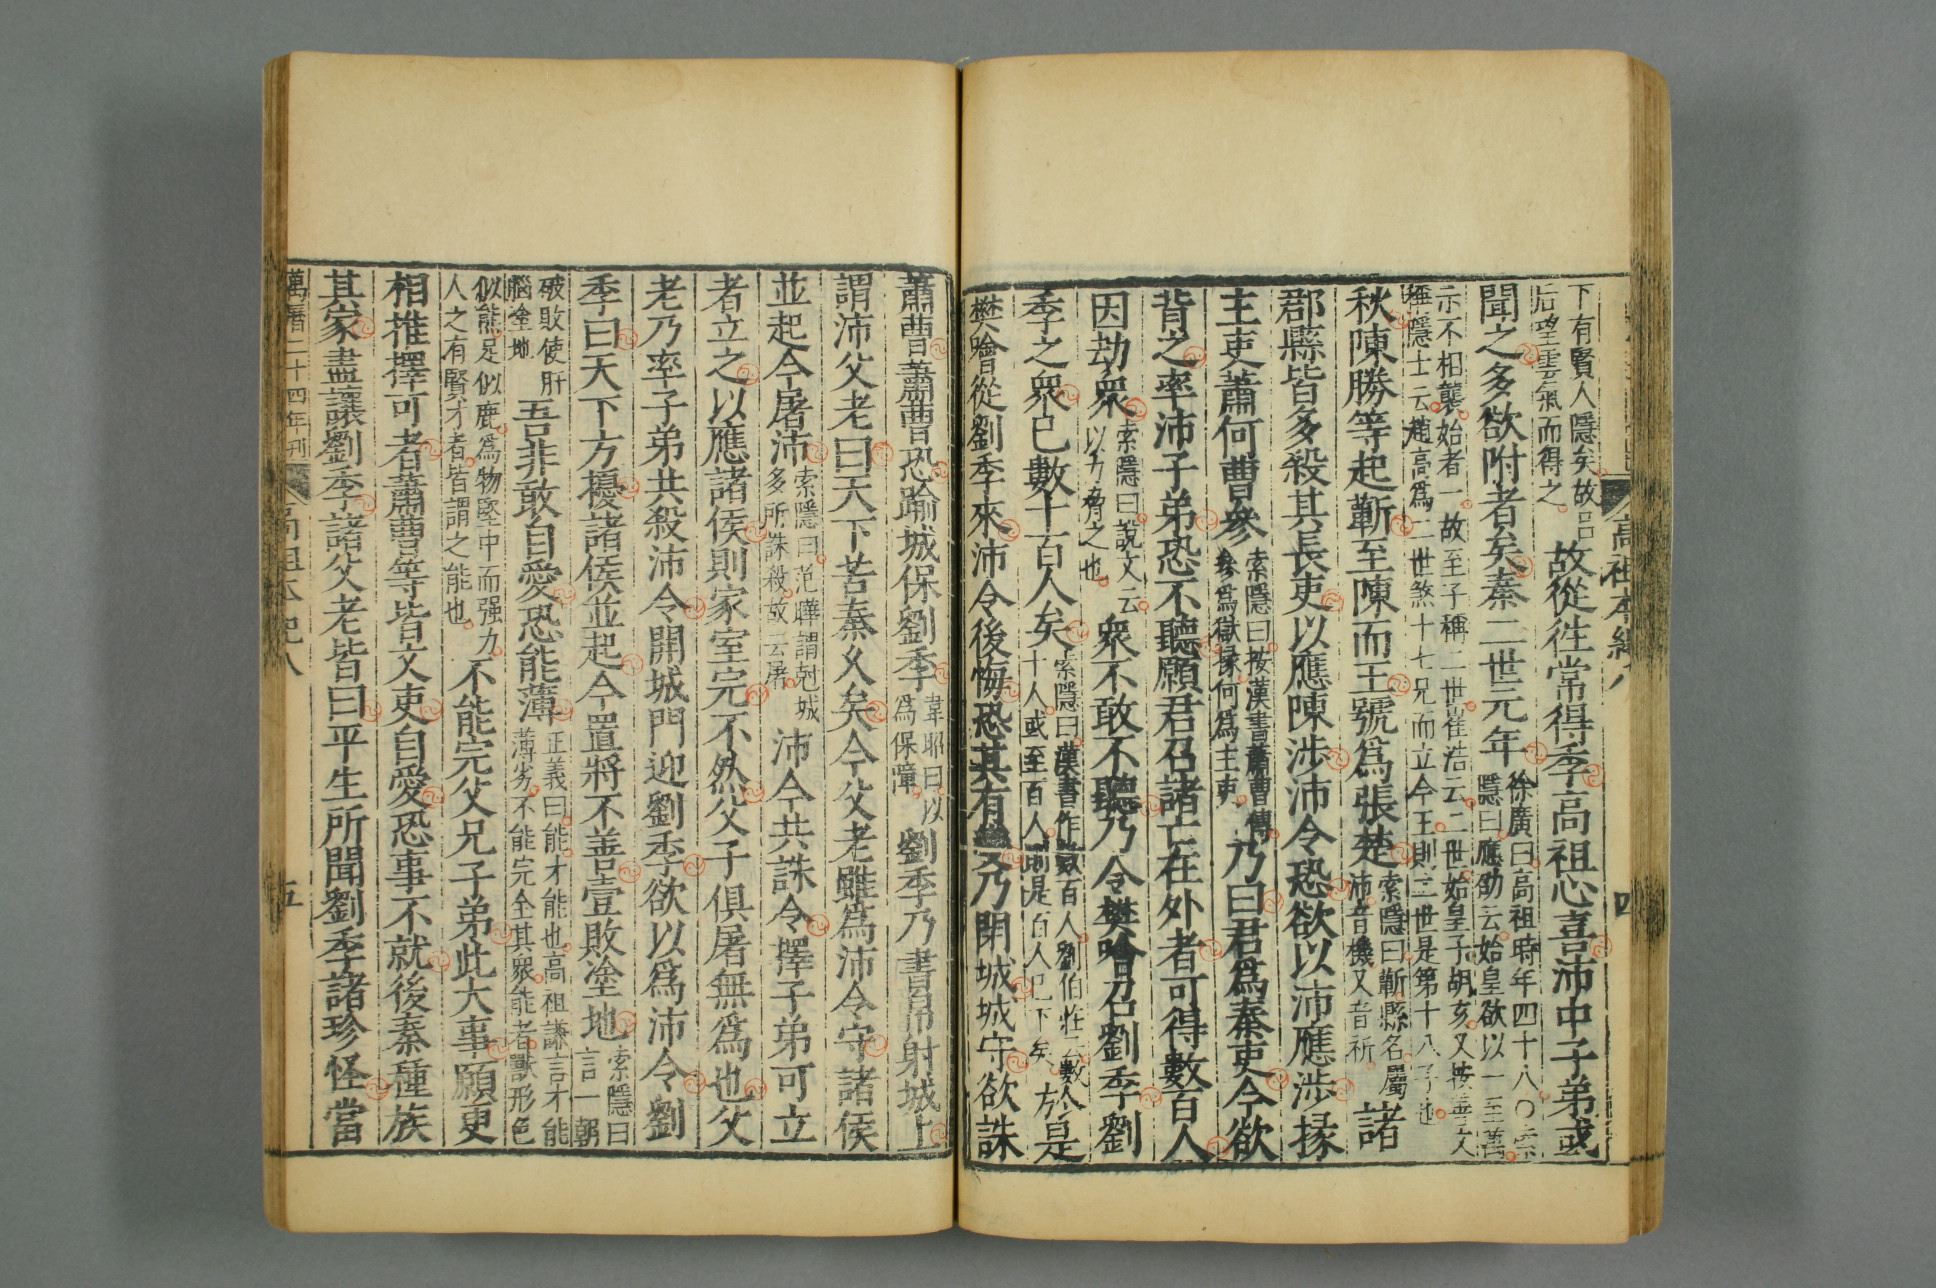 高祖本紀八　四
下有賢人隱矣故呂
后望雲氣而得之
故從往常得季高祖心喜沛中子弟或
聞之多欲附者矣秦二世元年
徐廣曰高祖時年四十八○索
隱曰應劭云始皇欲以一至萬
示不相襲始者一故至子稱二世崔浩云二世始皇子胡亥又按善文
稱隱士云趙高爲二世煞十七兄而立今王則二世是第十八子也
秋陳勝等起蘄至陳而王號爲張楚
索隱曰蘄縣名屬
沛音機又音祈
諸
郡縣皆多殺其長吏以應陳涉沛令恐欲以沛應涉掾
主吏蕭何曹參
索隱曰按漢書蕭曹傳
參爲獄掾何爲主吏
乃曰君爲秦吏今欲
背之率沛子弟恐不聽願君召諸亡在外者可得數百人
因劫衆
索隱曰說文云
以力脅之也
衆不敢不聽乃令樊噲召劉季劉
季之衆已數十百人矣
索隱曰漢書作數百人劉伯莊云數
十人或至百人則是百人已下矣
於是
樊噲從劉季來沛令後悔恐其有變乃閉城城守欲誅
蕭曹蕭曹恐踰城保劉季
韋昭曰以
爲保障
劉季乃書帛射城上
謂沛父老曰天下苦秦久矣今父老雖爲沛令守諸侯
並起今屠沛
索隱曰范曄謂剋城
多所誅殺故云屠
沛今共誅令擇子弟可立
者立之以應諸侯則家室完不然父子俱屠無爲也父
老乃率子弟共殺沛令開城門迎劉季欲以爲沛令劉
季曰天下方擾諸侯並起今置將不善壹敗塗地
索隱曰
言一朝
破敗使肝
腦塗地
吾非敢自愛恐能薄
正義曰能才能也高祖謙言才能
薄劣不能完全其眾能者獸形色
似熊足似鹿爲物堅中而强力
人之有賢才者皆謂之能也
不能完父兄子弟此大事願更
相推擇可者蕭曹等皆文吏自愛恐事不就後秦種族
其家盡讓劉季諸父老皆曰平生所聞劉季諸珍怪當
萬曆二十四年刊　高祖本紀八　五